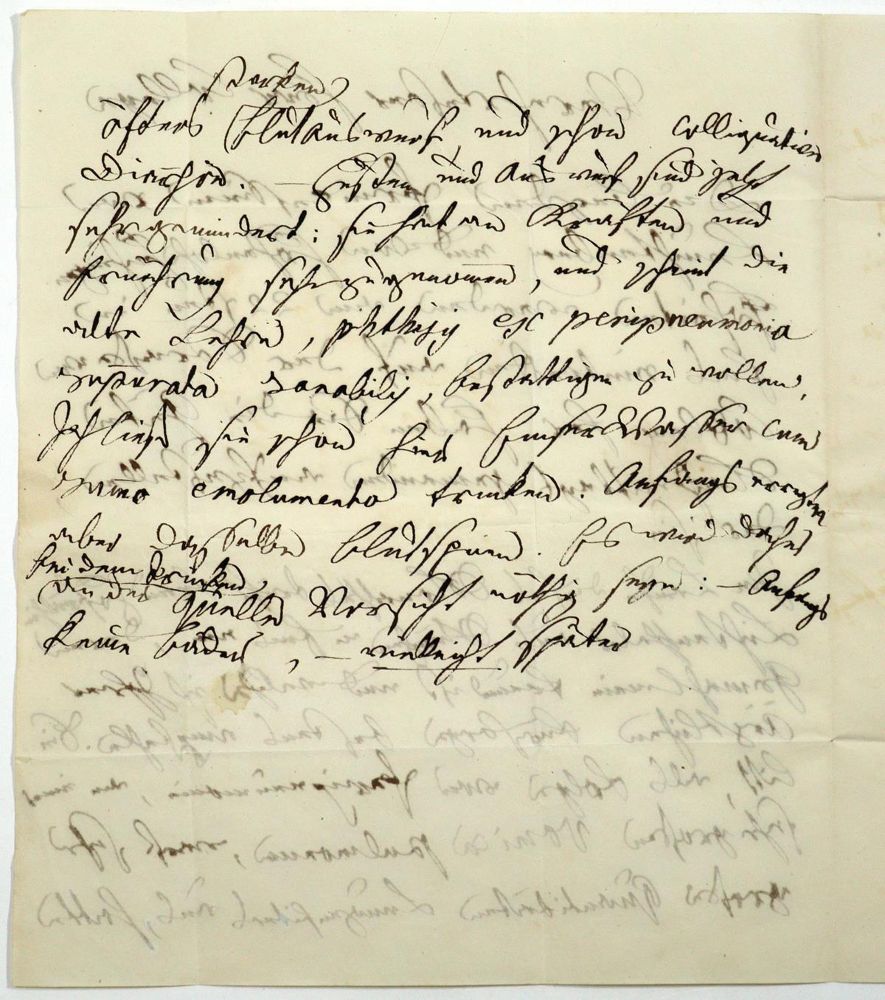 starken
öfters Blutauswurf, und schon colliquative
Diarrhöe. – Husten und Auswurf sind jetzt
sehr gemindert; sie hat an Kräften und
Ernährung sehr zugenommen, und scheint die
alte Lehre, phthisis ex peripneumonia
suppurata sanabilis, bestättigen zu wollen.
Ich ließ sie schon hier Emser Wasser cum
summo emolumento trinken. Anfangs erregten
aber dasselbe Blutspuren. Es wird daher
bei dem Trinken
an der Quelle Vorsicht nöthig seyn: – Anfangs
keine Bäder, – vielleicht später